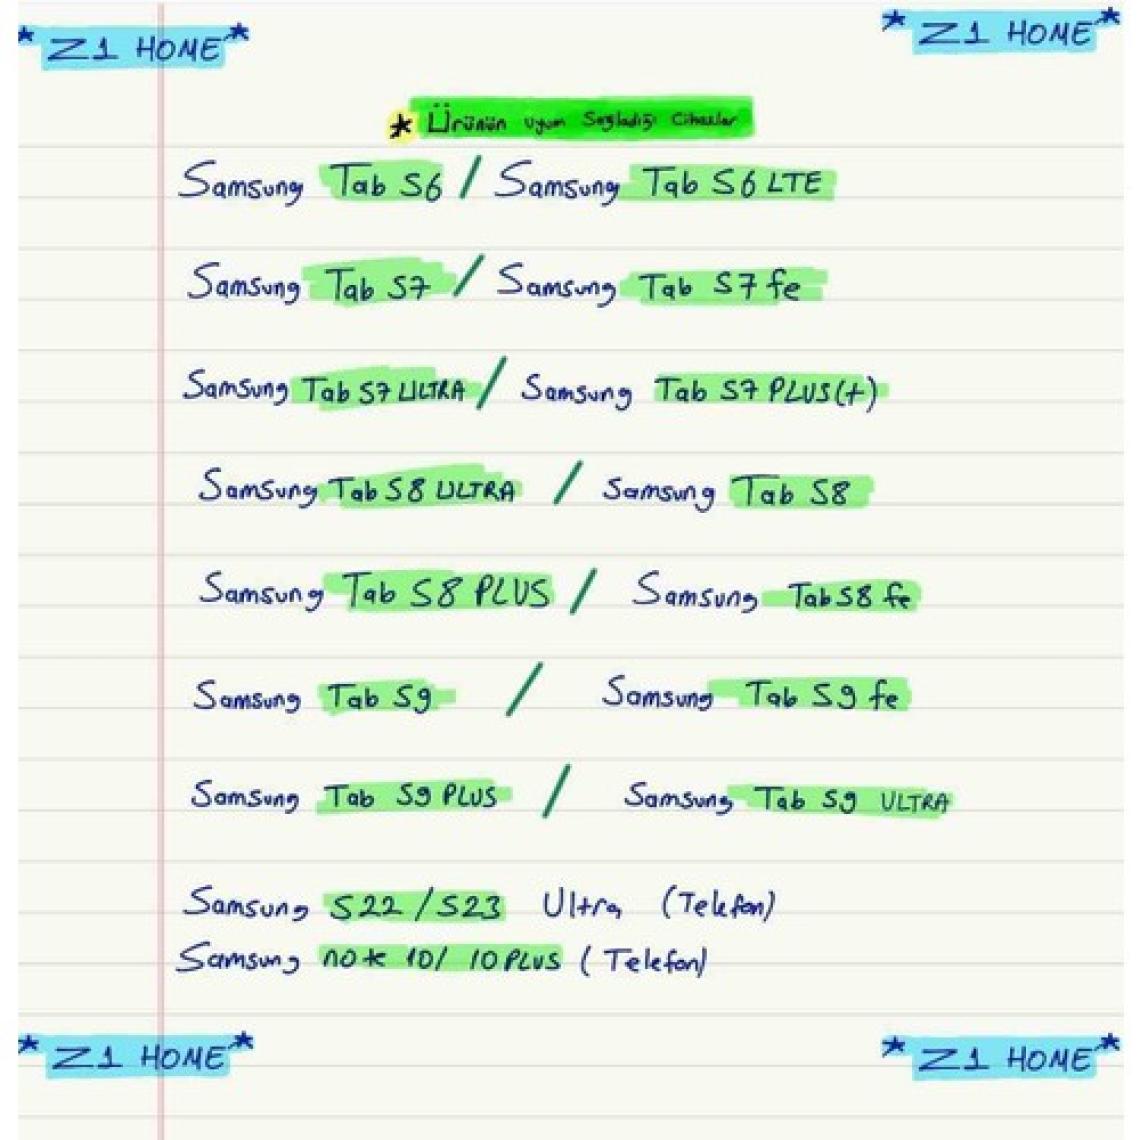 * Z1 HOME *
* Z1 HOME *
* Ürünün Uyum Sağladığı Cihazlar
Samsung Tab S6 / Samsung Tab S6 LTE
Samsung Tab S7 / Samsung Tab S7 fe
Samsung Tab S7 ULTRA / Samsung Tab S7 PLUS(+)
Samsung Tab S8 ULTRA / Samsung Tab S8
Samsung Tab S8 PLUS / Samsung Tab S8 fe
Samsung Tab S9 / Samsung Tab S9 fe
Samsung Tab S9 PLUS / Samsung Tab S9 ULTRA
Samsung S22 / S23 Ultra (Telefon)
Samsung note 10/ 10 PLUS (Telefon)
* Z1 HOME *
* Z1 HOME *